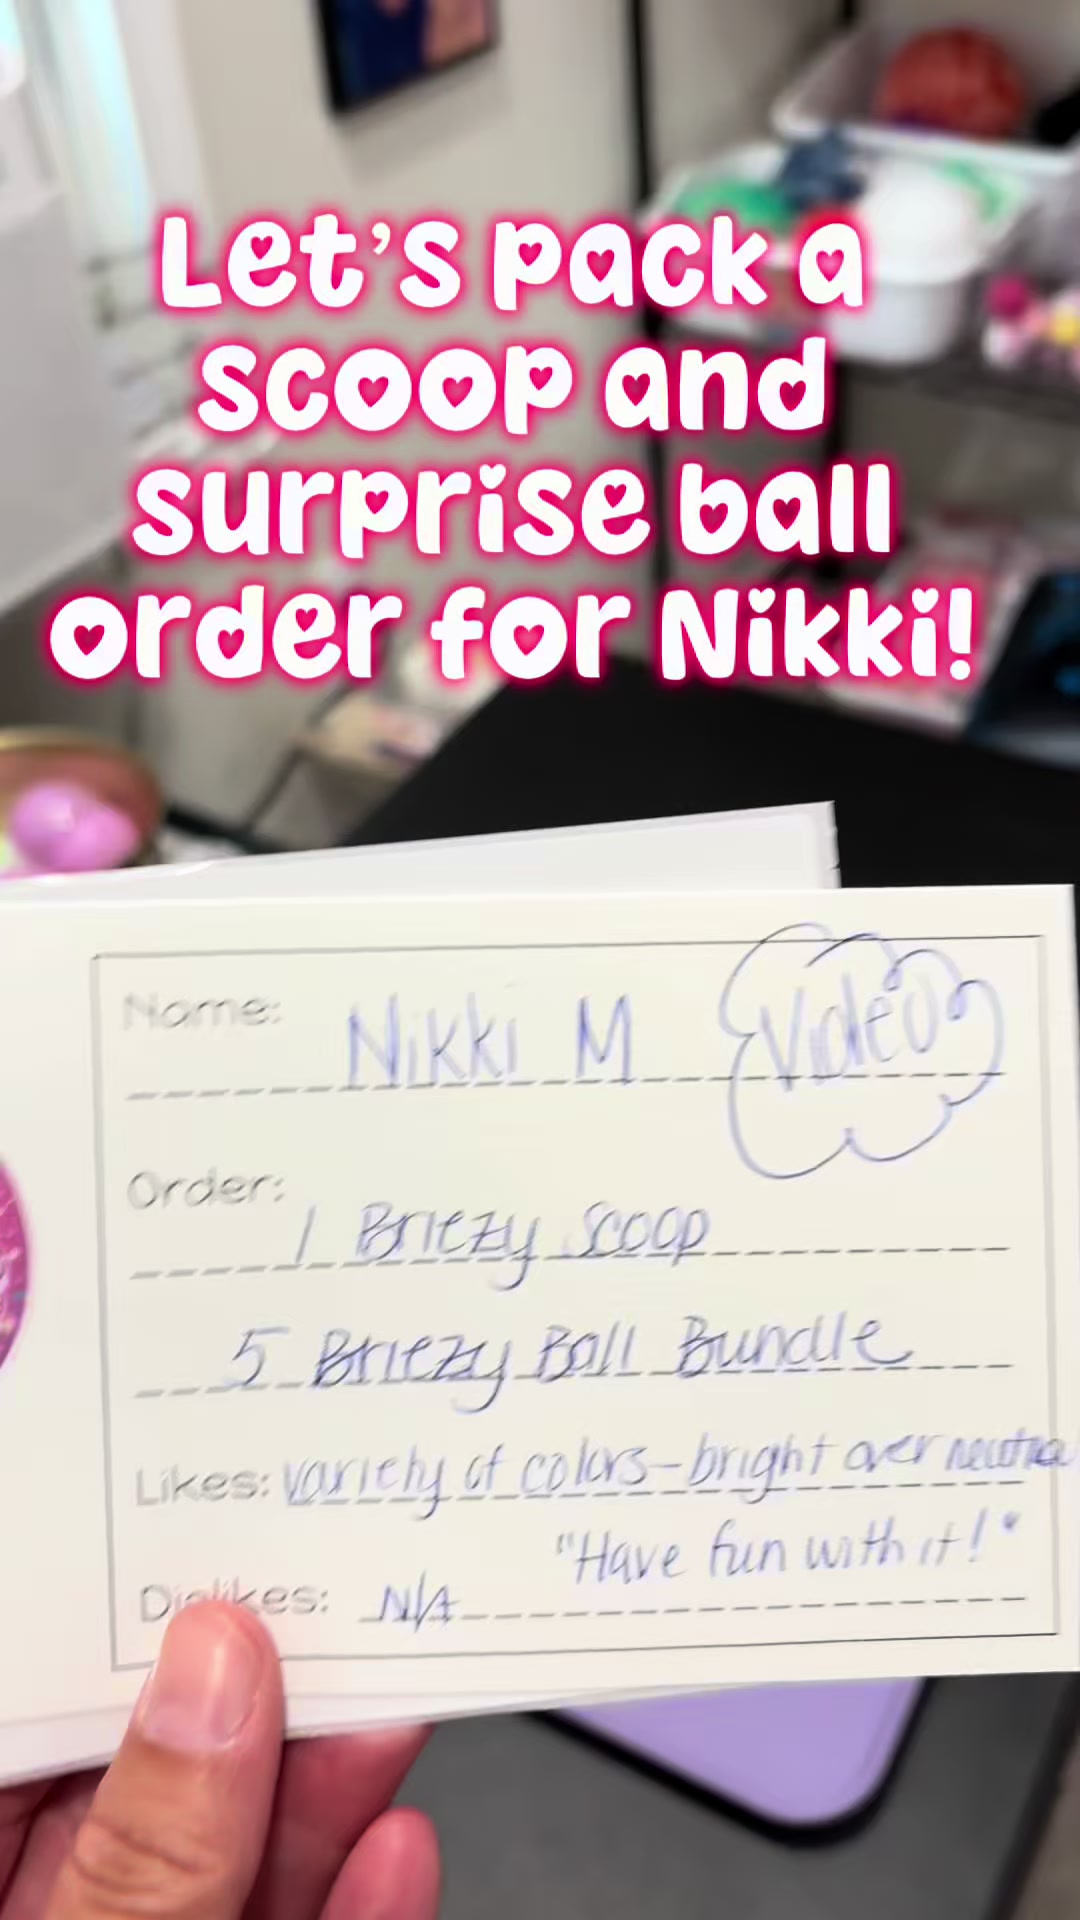 Let's pack a
scoop and
surprise ball
order for Nikki!
Name: Nikki M Video
Order: 1 Briezy Scoop
5 Briezy Ball Bundle
Likes: variety of colors - bright over neutral
"Have fun with it!"
Dislikes: N/A